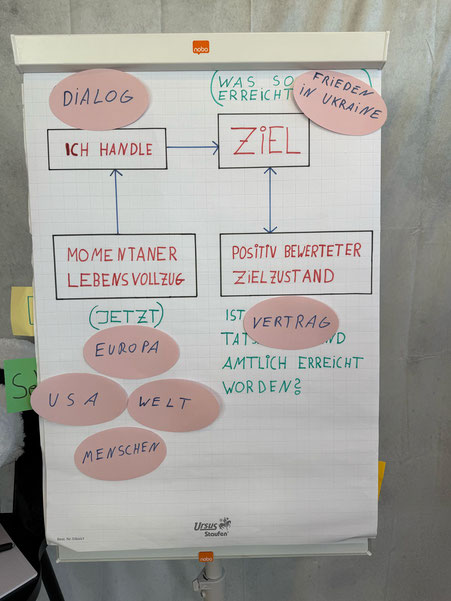 nobo
DiALOG
(WAS SO
ERREICHT
FRIEDEN
iN UKRAiNE
ICH HANDLE
ZiEL
MOMENTANER
LEBENSVOLLZUG
POSiTiV BEWERTETER
ZiELZUSTAND
(JETZT)
IST
VERTRAG
TATS
ND
AMTLiCH ERREiCHT
WORDEN?
EUROPA
USA
WELT
MENSCHEN
Ursus
Staufen
nobo